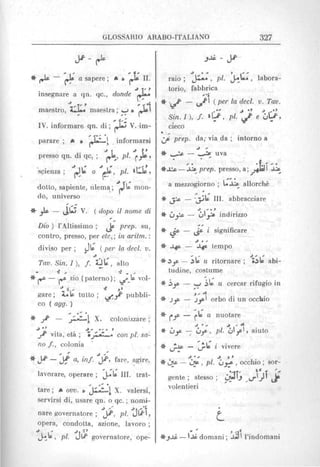 GLOSSARIO ARABO-ITALIANO 327
علم — عمل
* علم — علم a sapere; II. علّم
insegnare a qn. qc., donde معلّم
maestro, معلّمة maestra;
IV. informare qn. di; V. im-
parare; informarsi
presso qn. di qc.; علم, pl. علوم,
scienza; pl.
dotto, sapiente, ulema; عالم mon-
do, universo
* V. (dopo il nome di
Dio) l'Altissimo; على prep. su,
contro, presso, per etc.; in aritm.:
diviso per; (per la decl. v.
Tav. Sin. I), f. alto
* عمّ — عمّ zio (paterno); vol-
gare; tutto; pubbli-
co (agg.)
* X. colonizzare;
عمر vita, età; con pl. sa-
no f., colonia
* عمل — عمل a, inf. عمل, fare, agire,
lavorare, operare; III. trat-
tare; X. valersi,
servirsi di, usare qn. o qc.; nomi-
nare governatore; عمل, pl. أعمال,
opera, condotta, azione, lavoro;
عامل, pl. governatore, ope-
raio; معمل, pl. معامل, labora-
torio, fabbrica
* (per la decl. v. Tav.
Sin. I), f. pl. e
cieco
عن prep. da, via da; intorno a
* عنب — عنب uva
* عند — عند prep. presso, a;
a mezzogiorno; عندما allorchè
* عنق — III. abbracciare
* عنون — عنوان indirizzo
* عنى — عنى i significare
* عهد — عهد tempo
* عود — عاد u ritornare; عادة abi-
tudine, costume
* عوذ — u cercar rifugio in
* عور — أعور orbo di un occhio
* عوم — عام u nuotare
* عون — عون, pl. أعوان, aiuto
* عيش — عاش i vivere
* عين — عين, pl. عيون, occhio; sor-
gente; stesso;
volentieri
غ
* غدو — غدا domani; الغد l'indomani